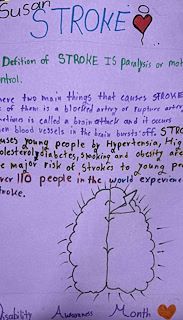 Susan
STROKE
Defition of STROKE IS paralysis or mot
ntrol.
ere two main things that causes STROKE
of them is a blocked artery or rupture artery
metimes is called a brain attack and it occurs
en blood vessels in the brain bursts off. STRO
uses young people by Hypertension, Hig
olesterol, diabetes, smoking and obesity are
e major risk of strokes to young pe
ver 110 people in the world experience
roke.
isability Awareness Month